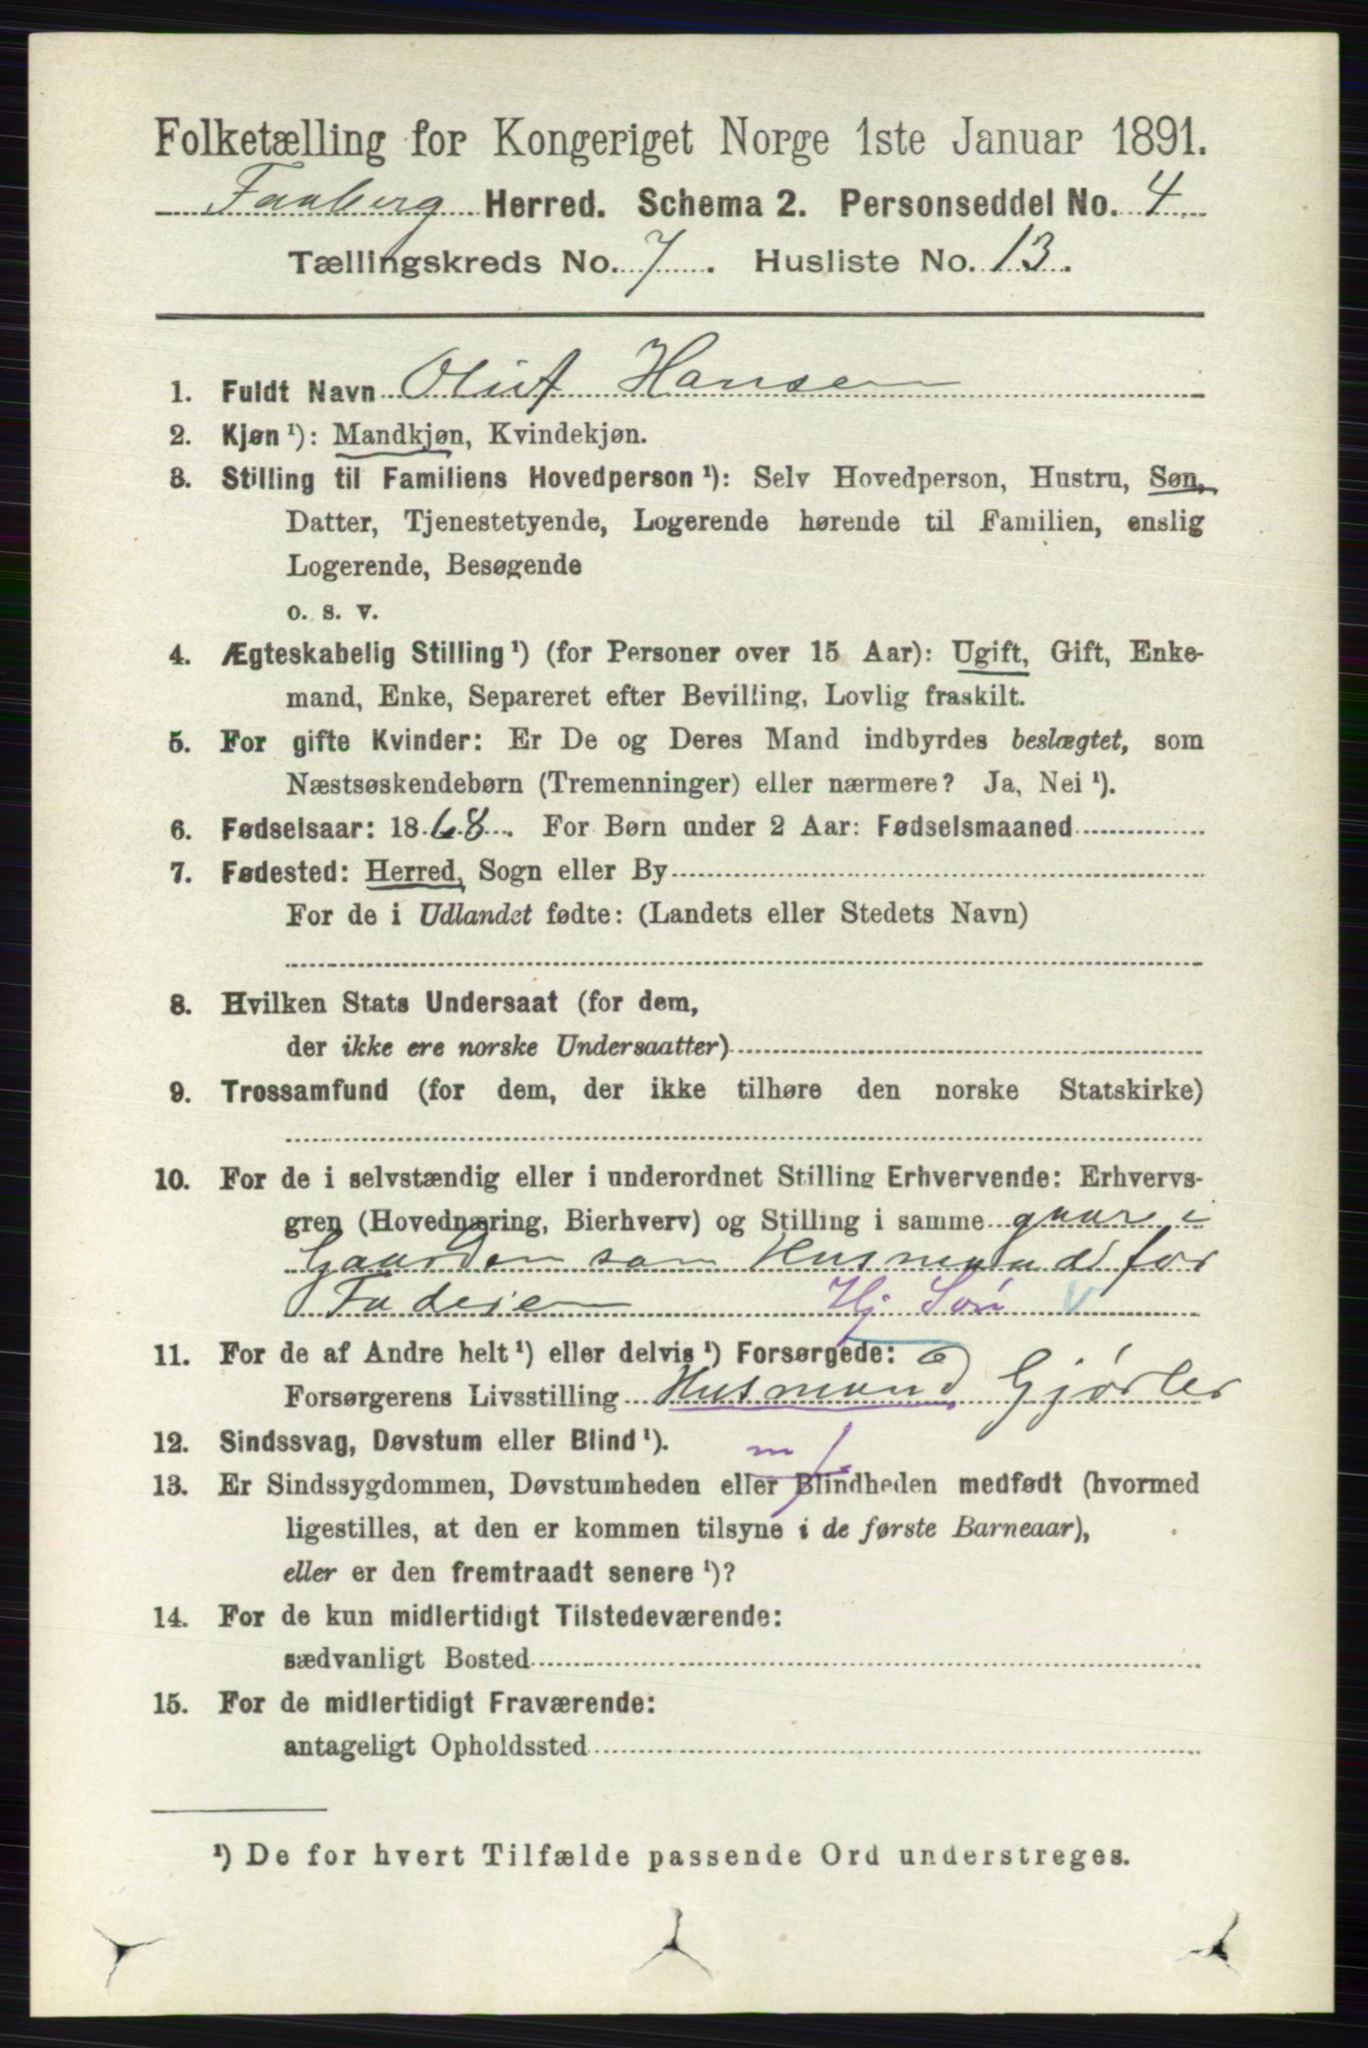 Folketælling for Kongeriget Norge 1ste Januar 1891.
Faaberg Herred. Schema 2. Personseddel No. 4
Tællingskreds No. 7. Husliste No. 13.
1. Fuldt Navn Oluf Hansen
2. Kjøn ¹): Mandkjøn, Kvindekjøn.
3. Stilling til Familiens Hovedperson ¹): Selv Hovedperson, Hustru, Søn,
Datter, Tjenestetyende, Logerende hørende til Familien, enslig
Logerende, Besøgende
o. s. v.
4. Ægteskabelig Stilling ¹) (for Personer over 15 Aar): Ugift, Gift, Enke-
mand, Enke, Separeret efter Bevilling, Lovlig fraskilt.
5. For gifte Kvinder: Er De og Deres Mand indbyrdes beslægtet, som
Næstsøskendebørn (Tremenninger) eller nærmere? Ja, Nei ¹).
6. Fødselsaar: 1868. For Børn under 2 Aar: Fødselsmaaned
7. Fødested: Herred, Sogn eller By
For de i Udlandet fødte: (Landets eller Stedets Navn)
8. Hvilken Stats Undersaat (for dem,
der ikke ere norske Undersaatter)
9. Trossamfund (for dem, der ikke tilhøre den norske Statskirke)
10. For de i selvstændig eller i underordnet Stilling Erhvervende: Erhvervs-
gren (Hovednæring, Bierhverv) og Stilling i samme gaar i
Gaarden som Husmand for
Fadeien Hj. Søn
11. For de af Andre helt ¹) eller delvis ¹) Forsørgede:
Forsørgerens Livsstilling Husmand Gjørler
12. Sindssvag, Døvstum eller Blind ¹).
13. Er Sindssygdommen, Døvstumheden eller Blindheden medfødt (hvormed
ligestilles, at den er kommen tilsyne i de første Barneaar),
eller er den fremtraadt senere ¹)?
14. For de kun midlertidigt Tilstedeværende:
sædvanligt Bosted
15. For de midlertidigt Fraværende:
antageligt Opholdssted
¹) De for hvert Tilfælde passende Ord understreges.